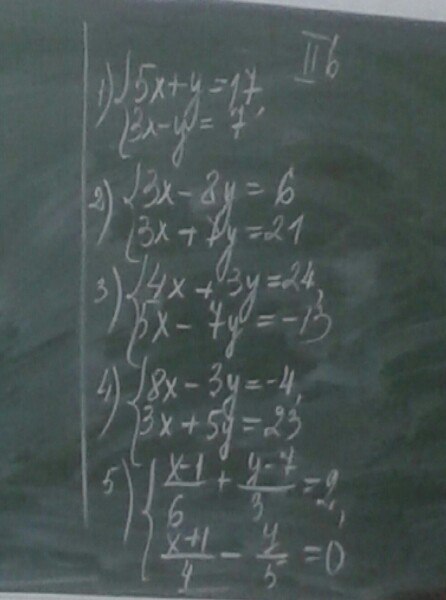 II в
1) { 5x+y=17,
3x-y=7
2) { 3x-8y=6
3x+7y=21
3) { 4x+3y=24,
5x-7y=-13
4) { 8x-3y=-4,
3x+5y=23
5) { (x-1)/6 + (y-7)/3 = 2,
(x+1)/4 - y/5 = 0